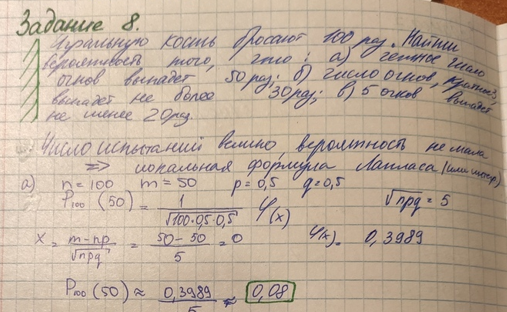 Задание 8.
Игральную кость бросают 100 раз. Найти
вероятность того, что: а) четное число
очков выпадет 50 раз; б) число очков, кратное 3,
выпадет не более 30 раз; в) 5 очков выпадет
не менее 20 раз.
Число испытаний велико, вероятность не мала
=> локальная формула Лапласа (или интегр)
а) n = 100 m = 50 p = 0,5 q = 0,5
P₁₀₀ (50) = 1 / √100·0,5·0,5 φ(x) √npq = 5
x = m - np / √npq = 50 - 50 / 5 = 0 φ(x) = 0,3989
P₁₀₀ (50) ≈ 0,3989 / 5 ≈ 0,08